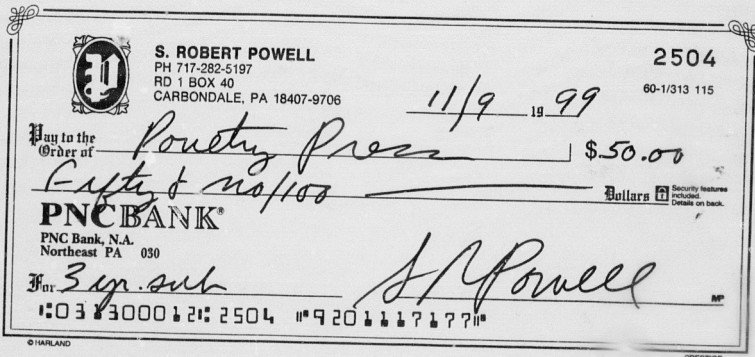 S. ROBERT POWELL
PH 717-282-5197
RD 1 BOX 40
CARBONDALE, PA 18407-9706
2504
60-1/313 115
11/9 19 99
Pay to the Order of Pouetry Press $ 50.00
Fifty & no/100 Dollars
Security features included. Details on back.
PNCBANK®
PNC Bank, N.A.
Northeast PA 030
For 3 yr. sub S R Powell MP
⑆031300012⑆ 2504 ⑈9201117177⑈
© HARLAND
PRESTIGE